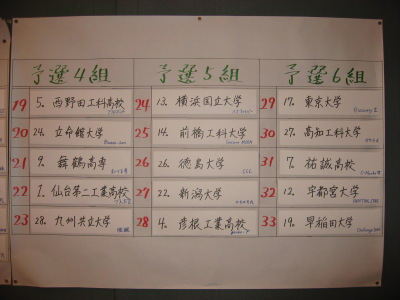 予選4組 予選5組 予選6組
19 5. 西野田工科高校 24 13. 横浜国立大学 29 17. 東京大学
20 24. 立命館大学 25 14. 前橋工科大学 30 27. 高知工科大学
21 9. 舞鶴高専 26 26. 徳島大学 31 7. 祐誠高校
22 1. 仙台第二工業高校 27 22. 新潟大学 32 12. 宇都宮大学
23 28. 九州共立大学 28 4. 彦根工業高校 33 19. 早稲田大学